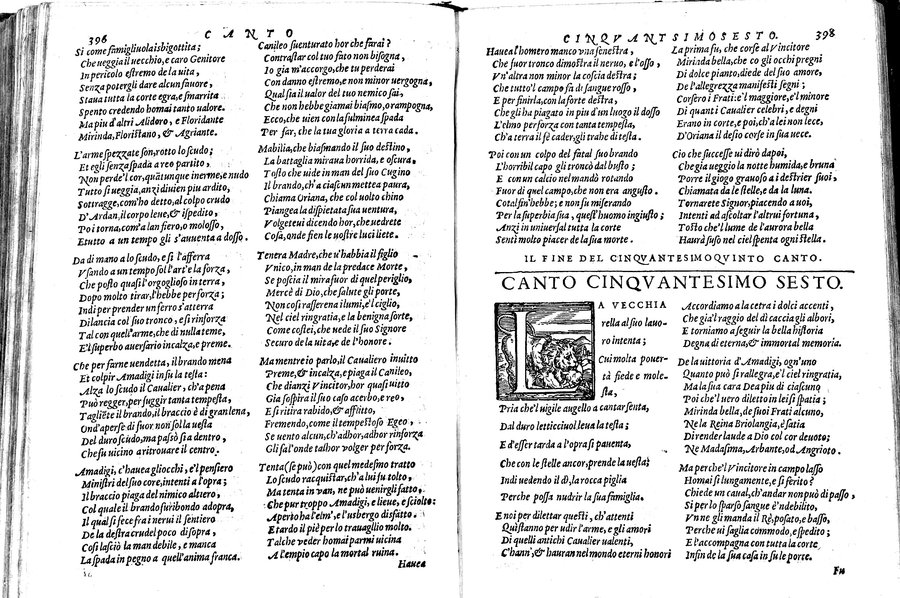 396 CANTO
Si come famigliuola isbigottita;
Che veggia il vecchio, e caro Genitore
In pericolo estremo de la uita,
Senza potergli dare alcun fauore,
Staua tutta la corte egra, e smarrita
Spento credendo homai tanto ualore.
Ma piu d'altri Alidoro, e Floridante
Mirinda, Floristano, & Agriante.
L'arme spezzate son, rotto lo scudo;
Et egli senza spada a reo partito,
Non perde'l cor, quātunque inerme, e nudo
Tutto si ueggia, anzi diuien piu ardito,
Sottragge, com'ho detto, al colpo crudo
D'Ardan, il corpo leue, & ispedito,
Poi torna, com'a lan fiero, o molosso,
Et utto a un tempo gli s'auuenta a dosso.
Da di mano a lo scudo, e sì l'afferra
Vsando a un tempo sol l'art'e la forza,
Che posto quasi l'orgoglioso in terra,
Dopo molto tirar, l'hebbe per forza;
Indi per prender un ferro s'atterra
Di lancia col suo tronco, e si rinforza
Tal con quell'arme, che di nulla teme,
E'l superbo auersario incalza, e preme.
Che per farne uendetta, il brando mena
Et colpir Amadigi in su la testa:
Alza lo scudo il Caualier, ch'a pena
Può regger, per suggir tanta tempesta,
Tagliēte il brando, il braccio è di gran lena,
Ond'aperse di suor non sol la uesta
Del duro scudo, ma passò sia dentro,
Che fu uicino a ritrouare il centro.
Amadigi, c'hauea gliocchi, e'l pensiero
Ministri del suo core, intenti a l'opra;
Il braccio piaga del nimico altero,
Col quale il brando furibondo adopra,
Il qual si fece fra i nerui il sentiero
De la destra crudel poco disopra,
Così lasciò la man debile, e manca
La spada in pegno a quell'anima franca.
Canileo suenturato hor che farai?
Contrastar col tuo fato non bisogna,
Io già m'accorgo, che tu perderai
Con danno estremo, e non minor uergogna,
Qual sia il ualor del tuo nemico sai,
Che non hebbe giamai biasmo, o rampogna,
Ecco, che uien con la fulminea spada
Per far, che la tua gloria a terra cada.
Mabilia, che biasmando il suo destino,
La battaglia miraua horrida, e oscura,
Tosto che uide in man del suo Cugino
Il brando, ch'a ciascun mettea paura,
Chiama Oriana, che col uolto chino
Piangea la dispietata sua uentura,
Volgeteui dicendo hor, che uedrete
Cosa, onde fien le uostre luci liete.
Tenera Madre, che u'habbia il figlio
Vnico, in man de la predace Morte,
Se poscia il mira fuor di quel periglio,
Mercè di Dio, che salute gli porte,
Non così rasserena i lumi, e'l ciglio,
Nel ciel ringratia, e la benigna sorte,
Come costei, che uede il suo Signore
Securo de la uita, e de l'honore.
Ma mentre io parlo, il Caualiero inuitto
Preme, & incalza, e piaga il Canileo,
Che dianzi Vincitor, hor quasi uitto
Gia sospira il suo caso acerbo, e reo,
E si ritira rabido, & afflitto,
Fremendo, come il tempestoso Egeo,
Se uento alcun, ch'adhor, adhor rinforza
Gli fa l'onde talhor volger per forza.
Tenta (se può) con quel medesmo tratto
Lo scudo racquistar, ch'a lui fu tolto,
Ma tenta in van, ne può uenirgli fatto,
Che pur troppo Amadigi, e lieue, e sciolto:
Aperto ha l'elm', e l'usbergo disfatto.
E tardo il piè per lo trauaglio molto.
Talche veder homai parmi uicina
A l'empio capo la mortal ruina.
Hauea
CINQVANTESIMOSESTO. 398
Hauea l'homero manco vna fenestra,
Che fuor tronco dimostra il neruo, e l'osso,
Vn'altra non minor la coscia destra;
Che tutto'l campo fa di sangue rosso,
E per finirla, con la forte destra,
Che gli ha piagato in piu d'un luogo il dosso
L'elmo perforza con tanta tempesta,
Ch'a terra il fè cader, gli trahe di testa.
Poi con un colpo del fatal suo brando
L'horribil capo gli troncò dal busto;
E con un calcio nel mandò rotando
Fuor di quel campo, che non era angusto.
Cotal fin'hebbe; e non fu miserando
Per la superbia sua, quest'huomo ingiusto;
Anzi in uniuersal tutta la corte
Senti molto piacer de la sua morte.
La prima fu, che corse al Vincitore
Mirinda bella, che co gli occhi pregni
Di dolce pianto, diede del suo amore,
De l'allegrezza manifesti segni;
Corsero i Frati: e'l maggiore, e'l minore
Di quanti Caualier celebri, e degni
Erano in corte, e poi, ch'a lei non lece,
D'Oriana il desio corse in sua uece.
Cio che successe ui dirò dapoi,
Che gia ueggio la notte humida, e bruna
Porre il giogo grauoso a i destrier suoi,
Chiamata da le stelle, e da la luna.
Tornarete Signor, piacendo a uoi,
Intenti ad ascoltar l'altrui fortuna,
Tosto che'l lume de l'aurora bella
Haurà suso nel ciel spenta ogni stella.
IL FINE DEL CINQVANTESIMOQVINTO CANTO.
CANTO CINQVANTESIMO SESTO.
LA VECCHIA
rella al suo lauo-
ro intenta;
Cui molta pouer-
tà siede e mole-
sta,
Pria che'l uigile augello a cantar senta,
Dal duro letticciuol leua la testa;
E d'esser tarda a l'opra si pauenta,
Che con le stelle ancor, prende la uesta;
Indi uedendo il dì, la rocca piglia
Perche possa nudrir la sua famiglia.
E noi per dilettar questi, ch'attenti
Qui stanno per udir l'arme, e gli amori
Di quelli antichi Caualier ualenti,
C'hann', & hauran nel mondo eterni honori
Accordiamo a la cetra i dolci accenti,
Che gia'l raggio del dì caccia gli albori,
E torniamo a seguir la bella historia
Degna di eterna, & immortal memoria.
De la uittoria d'Amadigi, ogn'uno
Quanto può si rallegra, e'l ciel ringratia,
Ma la sua cara Dea piu di ciascuno
Poi che'l uero diletto in lei si spatia;
Mirinda bella, de suoi Frati alcuno,
Ne la Reina Briolangia, è satia
Di render laude a Dio col cor deuoto;
Ne Madasima, Arbante, od Angrioto.
Ma perche'l Vincitore in campo lasso
Homai sì lungamente, e sì ferito?
Chiede un caual, ch'andar non può di passo,
Sì per lo sparso sangue è'ndebilito,
Vn ne gli manda il Rè, posato, e basso,
Perche ui saglia commodo, e spedito;
E l'accompagna con tutta la corte
Infin de la sua casa in su le porte.
Fu